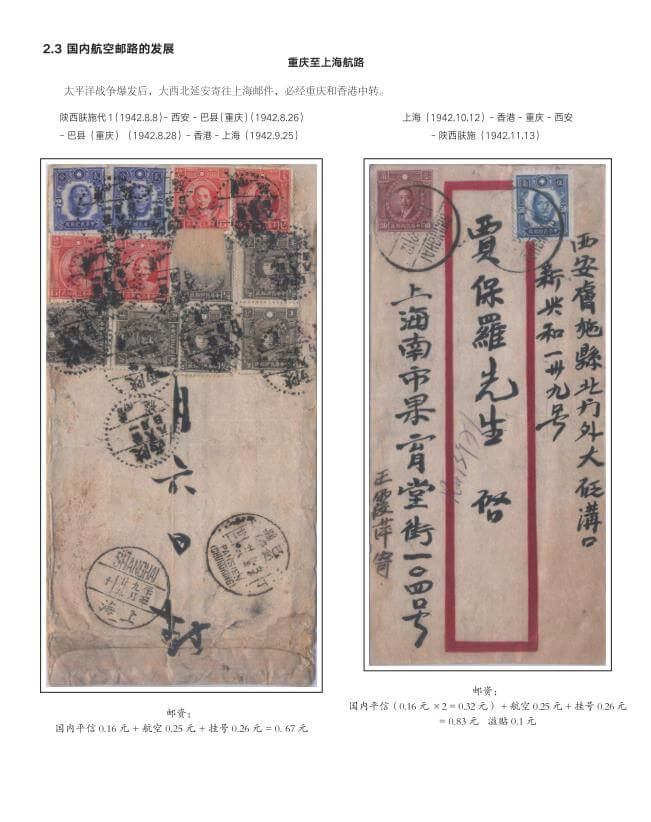 2.3 国内航空邮路的发展
重庆至上海航路
太平洋战争爆发后，大西北延安寄往上海邮件，必经重庆和香港中转。
陕西肤施代1(1942.8.8)- 西安 - 巴县(重庆)(1942.8.26)
- 巴县（重庆）(1942.8.28) - 香港 - 上海（1942.9.25）
上海（1942.10.12）- 香港 - 重庆 - 西安
- 陕西肤施（1942.11.13）
月六日
SHANGHAI
上海
PAHSIEN
CHUNGKING
西安膚施縣北门外大砭溝口
新共和一卅九号
賈保羅先生 啓
上海南市果育堂街一〇四〇号
王霞萍寄
SHANGHAI
邮资：
国内平信 0.16 元 + 航空 0.25 元 + 挂号 0.26 元 = 0. 67 元
邮资：
国内平信（0.16 元 ×2 = 0.32 元）+ 航空 0.25 元 + 挂号 0.26 元
= 0.83 元 溢贴 0.1 元